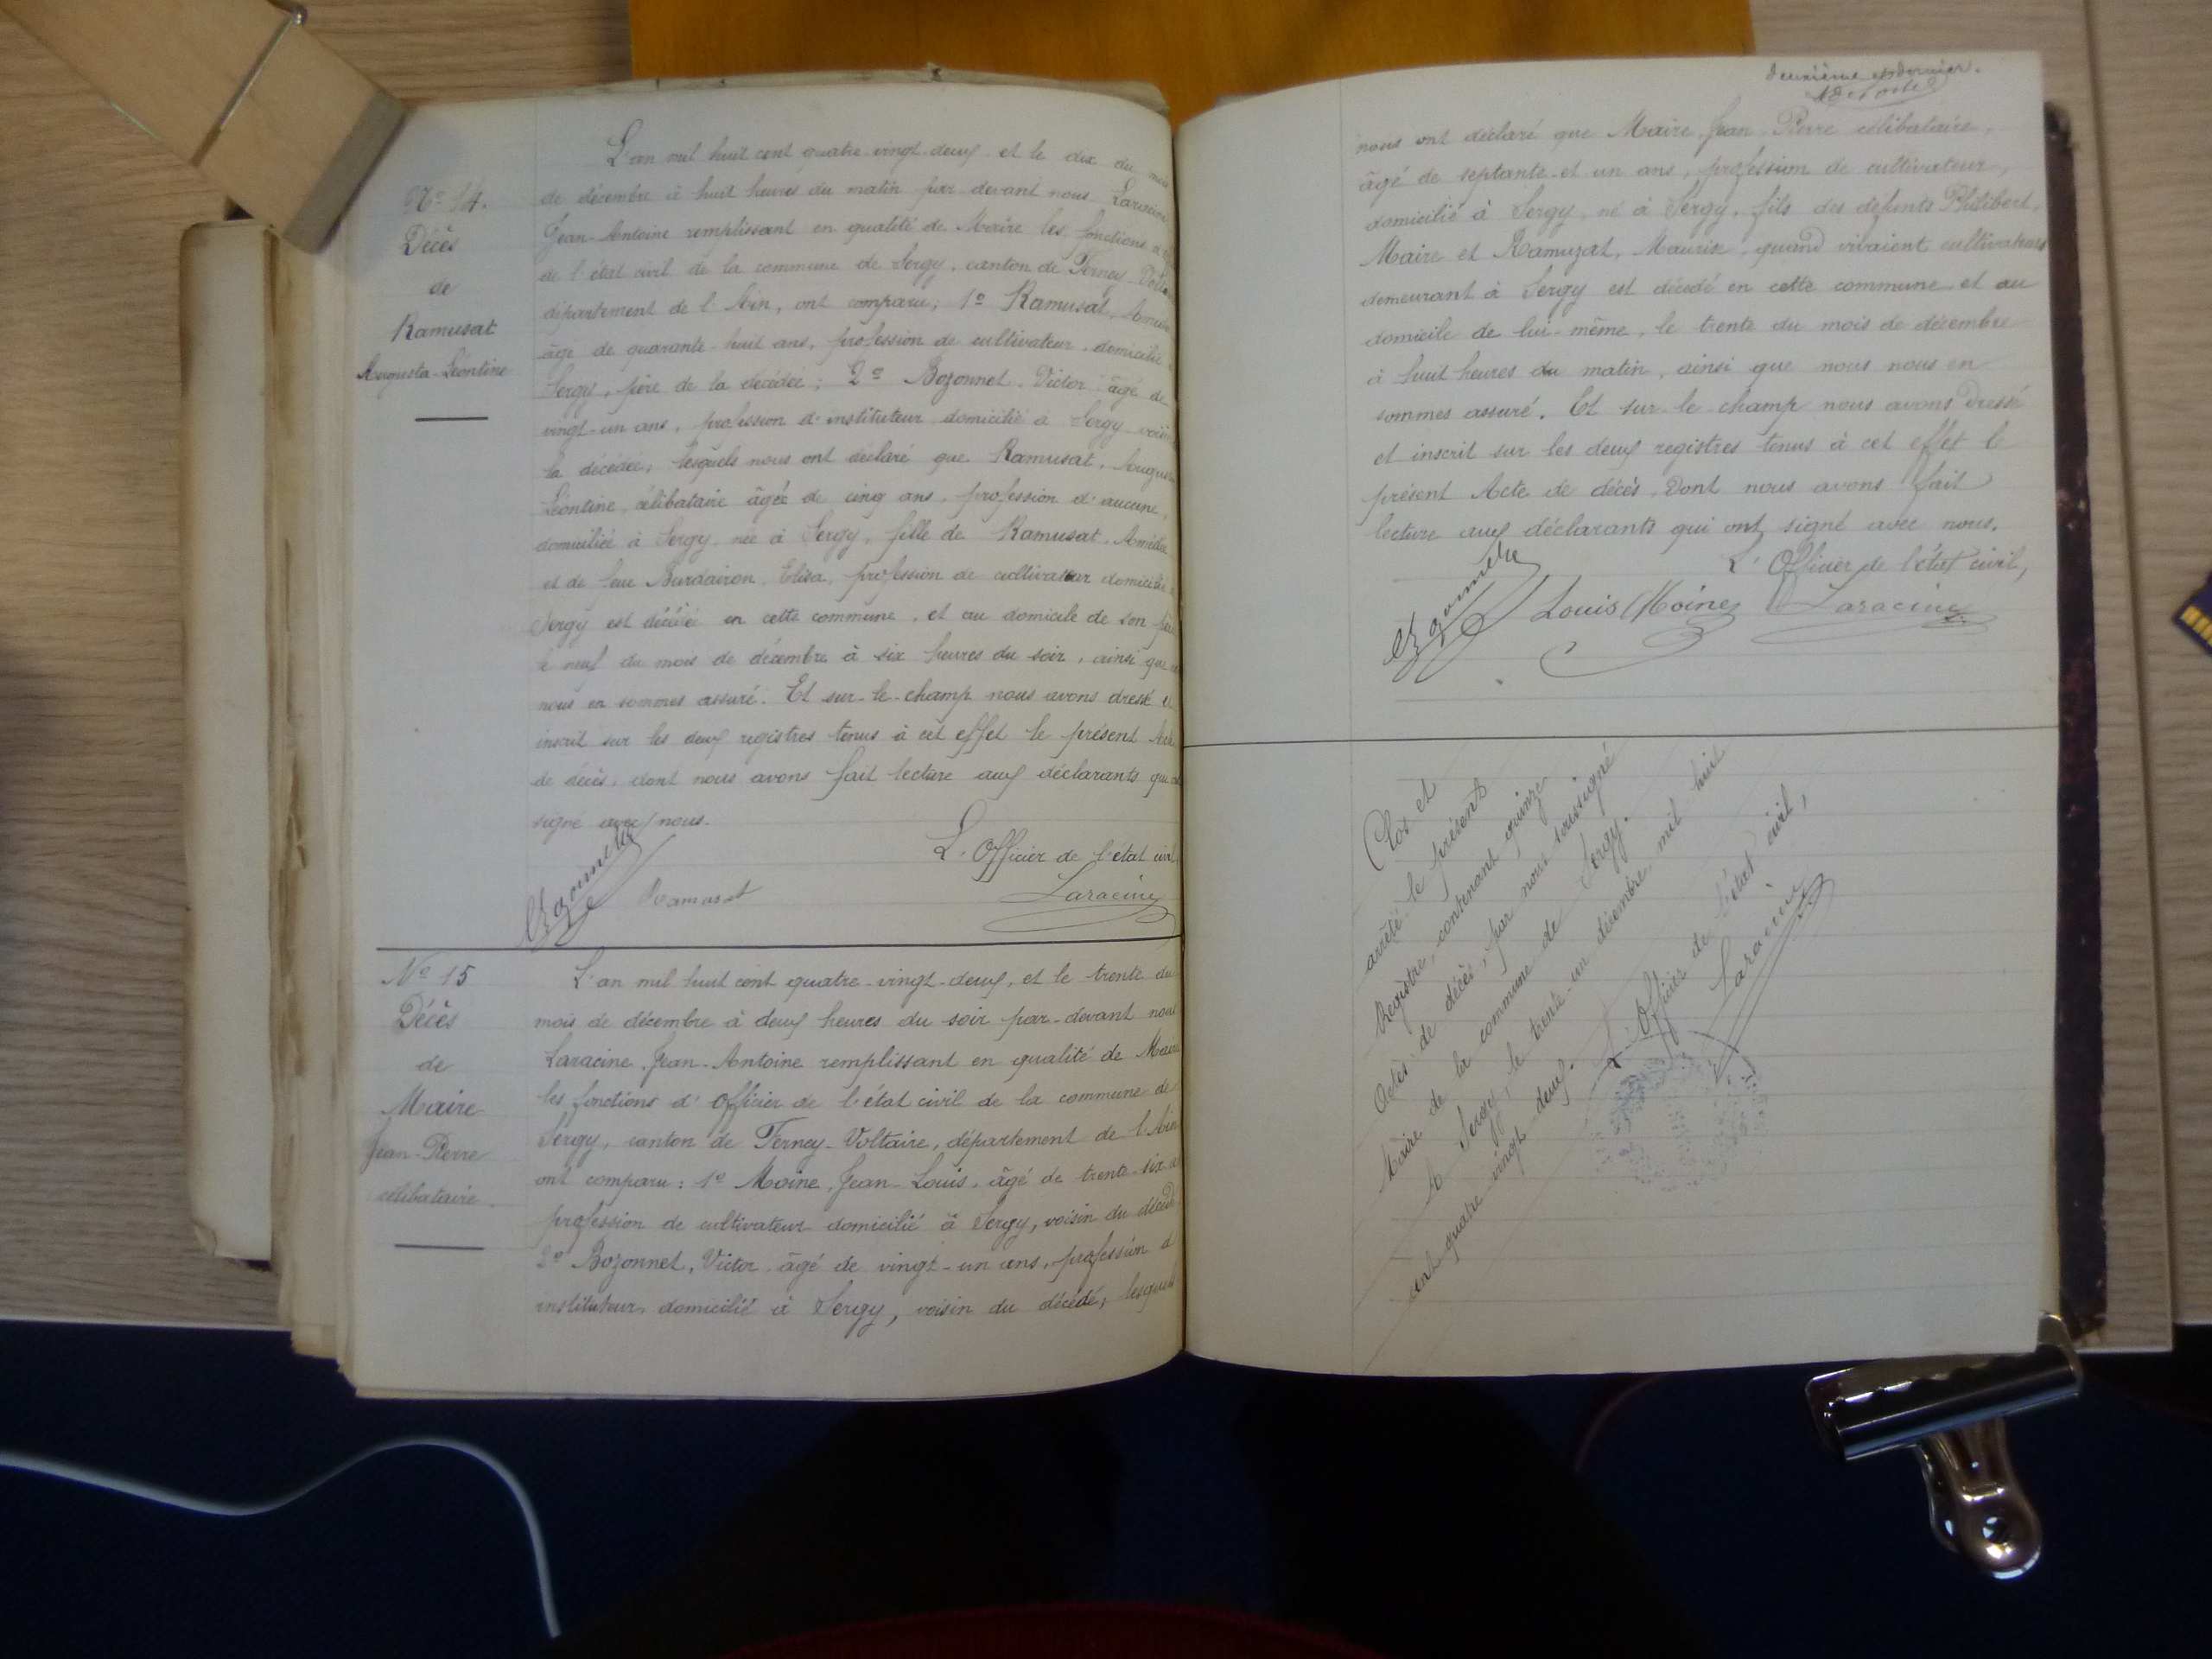 Nº 14.
Décès
de
Ramusat
Augusta-Léontine
L'an mil huit cent quatre vingt-deux et le dix du mois
de décembre à huit heures du matin par devant nous Laracine
Jean-Antoine remplissant en qualité de Maire les fonctions
de l'état civil de la commune de Sergy, canton de Ferney-Voltaire
département de l'Ain, ont comparu; 1º Ramusat, Amédée
âgé de quarante-huit ans, profession de cultivateur, domicilié à
Sergy, père de la décédée; 2º Bozonnet, Victor âgé de
vingt-un ans, profession d'instituteur domicilié à Sergy voisin
la décédée; lesquels nous ont déclaré que Ramusat, Augusta
Léontine, célibataire âgée de cinq ans, profession d'aucune,
domiciliée à Sergy née à Sergy, fille de Ramusat, Amédée
et de feue Burdairon, Elisa, profession de cultivateur domicilié à
Sergy est décédée en cette commune, et au domicile de son père
le neuf du mois de décembre à six heures du soir, ainsi que
nous en sommes assuré. Et sur-le-champ nous avons dressé et
inscrit sur les deux registres tenus à cet effet le présent Acte
de décès, dont nous avons fait lecture aux déclarants qui ont
signé avec nous.
L'Officier de l'état civil
Ramusat
Laracine
Nº 15
Décès
de
Maire
Jean-Pierre
célibataire.
L'an mil huit cent quatre-vingt-deux, et le trente du
mois de décembre à deux heures du soir par-devant nous
Laracine, Jean-Antoine remplissant en qualité de Maire
les fonctions d'Officier de l'état civil de la commune de
Sergy, canton de Ferney-Voltaire, département de l'Ain
ont comparu: 1º Moine, Jean-Louis, âgé de trente-six a
profession de cultivateur domicilié à Sergy, voisin du décédé
2º Bozonnet, Victor âgé de vingt-un ans, profession d'
instituteur, domicilié à Sergy, voisin du décédé; lesquels
deuxième et dernier.
nous ont déclaré que Maire, Jean-Pierre célibataire,
âgé de septante-et un ans, profession de cultivateur,
domicilié à Sergy, né à Sergy, fils des défunts Philibert,
Maire et Ramuzat, Maurise, quand vivaient cultivateurs
demeurant à Sergy est décédé en cette commune et au
domicile de lui-même, le trente du mois de décembre
à huit heures du matin, ainsi que nous nous en
sommes assuré. Et sur-le-champ nous avons dressé
et inscrit sur les deux registres tenus à cet effet le
présent Acte de décès, dont nous avons fait
lecture aux déclarants qui ont signé avec nous.
L'Officier de l'état civil,
Louis Moine
Laracine
Clos et
arrêté le présent
Registre, contenant quinze
Actes de décès, par nous soussigné
Maire de la commune de Sergy.
A Sergy, le trente-un décembre, mil huit
cent quatre vingt deux.
L'Officier de l'état civil,
Laracine